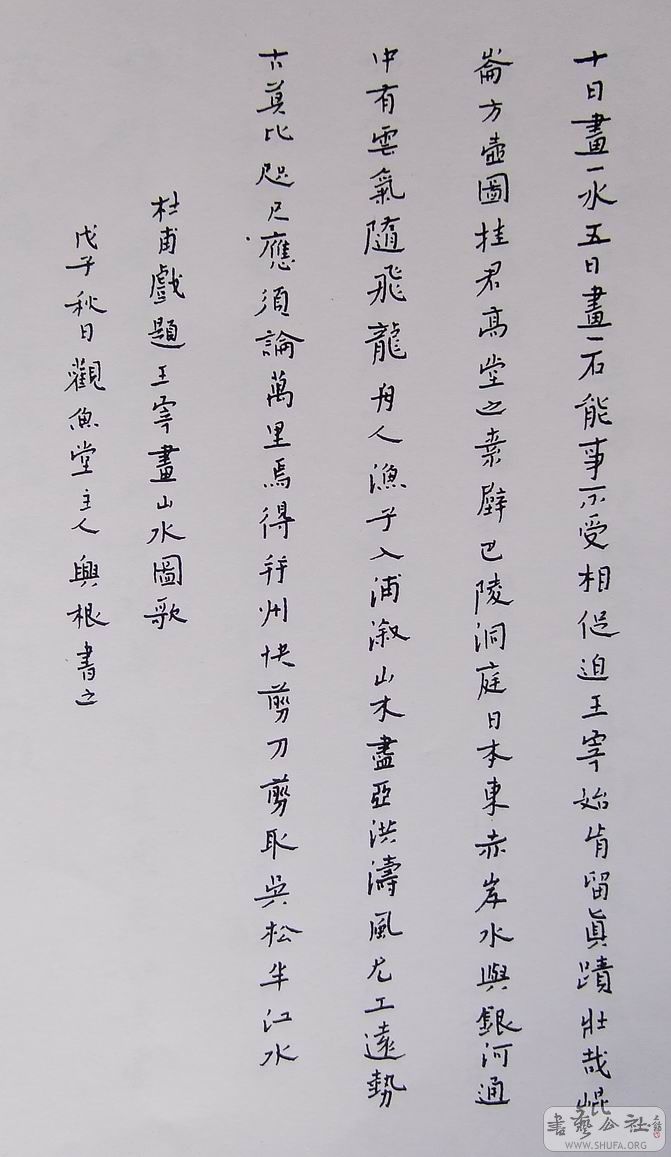 十日畫一水五日畫一石能事不受相促迫王宰始肯留真蹟壯哉崐
崙方壺圖挂君高堂之素壁巴陵洞庭日本東赤岸水與銀河通
中有雲氣隨飛龍舟人漁子入浦溆山木盡亞洪濤風尤工遠勢
古莫比咫尺應須論萬里焉得并州快剪刀剪取吳松半江水
杜甫戲題王宰畫山水圖歌
戊子秋日觀魚堂主人興根書之
書藝公社
WWW.SHUFA.ORG